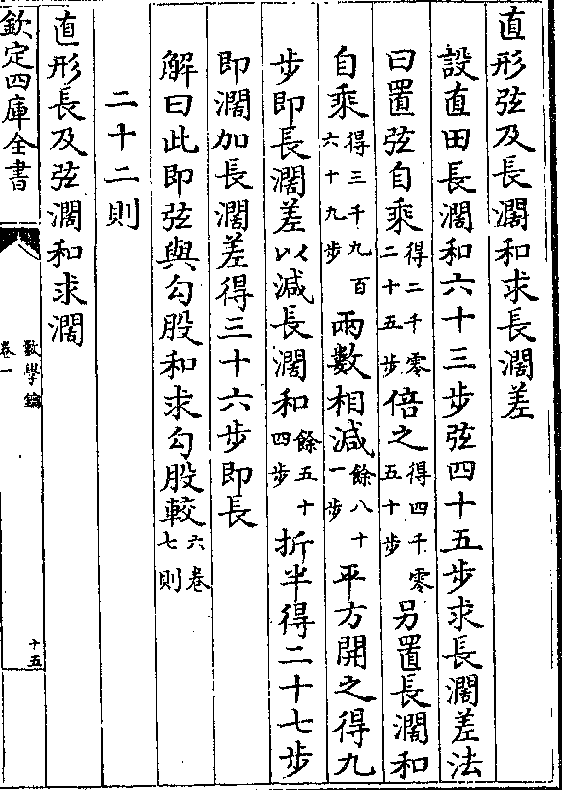 直形弦及長濶和求長濶差
設直田長濶和六十三步弦四十五步求長濶差法
曰置弦自乘得二千零二十五步倍之得四千零五十步另置長濶和
自乘得三千九百六十九步兩數相減餘八十一步平方開之得九
步即長濶差以減長濶和餘五十四步折半得二十七步
即濶加長濶差得三十六步即長
解曰此即弦與勾股和求勾股較六卷七則
二十二則
直形長及弦濶和求濶
欽定四庫全書
數學鑰
卷一
十五